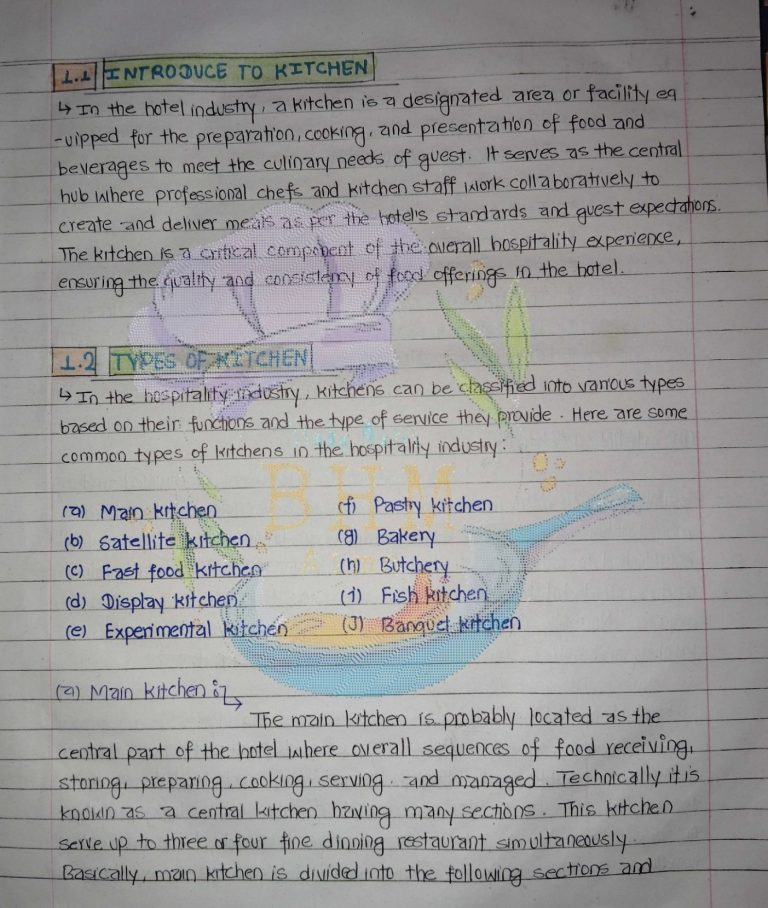 1.1 INTRODUCE TO KITCHEN
↳ In the hotel industry, a kitchen is a designated area or facility eq
-uipped for the preparation, cooking, and presentation of food and
beverages to meet the culinary needs of guest. It serves as the central
hub where professional chefs and kitchen staff work collaboratively to
create and deliver meals as per the hotel's standards and guest expectations.
The kitchen is a critical component of the overall hospitality experience,
ensuring the quality and consistency of food offerings in the hotel.
1.2 TYPES OF KITCHEN
↳ In the hospitality industry, kitchens can be classified into various types
based on their functions and the type of service they provide. Here are some
common types of kitchens in the hospitality industry:
BHM
(a) Main kitchen (f) Pastry kitchen
(b) Satellite kitchen (g) Bakery
(c) Fast food kitchen (h) Butchery
(d) Display kitchen (i) Fish kitchen
(e) Experimental kitchen (J) Banquet kitchen
(a) Main kitchen :↳
The main kitchen is probably located as the
central part of the hotel where overall sequences of food receiving,
storing, preparing, cooking, serving. and managed. Technically it is
known as a central kitchen having many sections. This kitchen
serve up to three or four fine dinning restaurant simultaneously.
Basically, main kitchen is divided into the following sections and